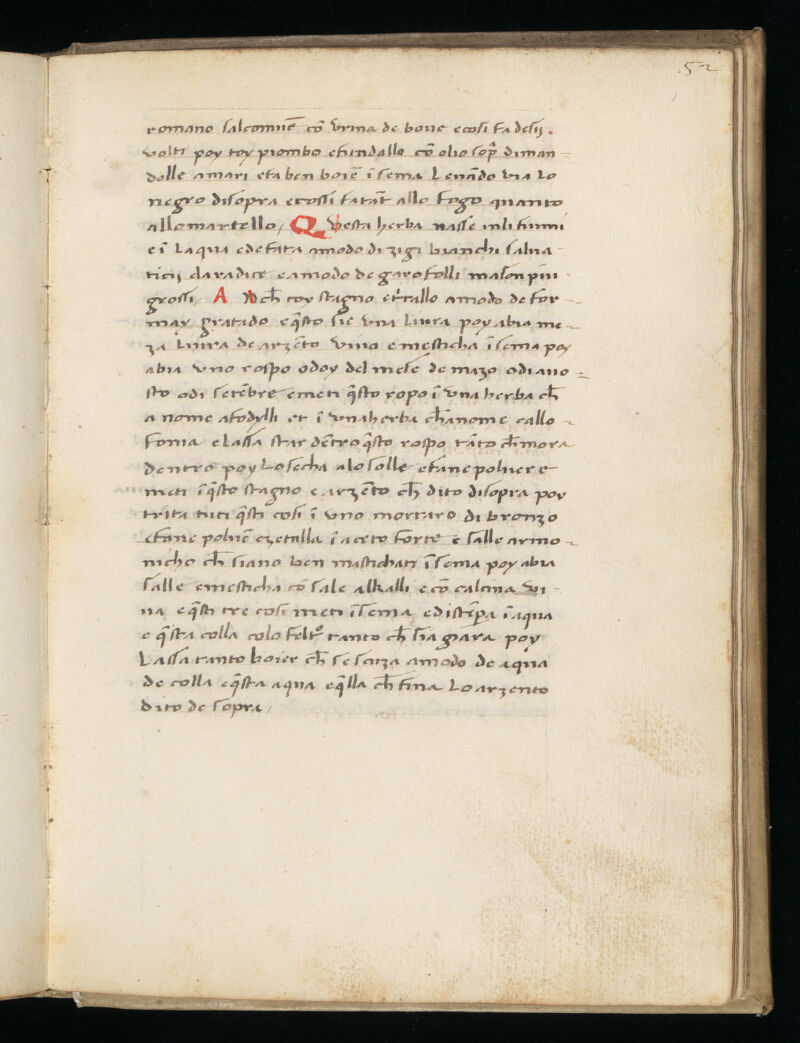 52
romano salcomuē cō vrina de boue e cosi fa desij.
volti poy toy piombo efundallo cō olio sopͣ diman=
dolle amari efa ben boiē ī sema Leuādo via Lo
negro disopra ecossi fatāt allo fogo quanto
allo martello / Questa herba nasse inli fiumi
e ī Laqua edefata amodo di zigi bianchi salua-
ticij ela radice e amodo de garofolli ma son piu
grossi / Anch̄ toy stagno et tallo amodo de for-
may gratado eq̄sto sie vna Liura poy abia me-
za Liura de arzēto viuo emesticha ī sema poy
abia vno rospo odoy del mese de mazo odi auo=
sto odi setēbre emeti q̄sto ropo ī vna herba ch̄
a nome afodylli et ī vna herba ch̄ a nome callo-
fonia e Lassa star dētro q̄sto rospo tāto ch̄ mora
dentro poy Lo secha alo solle efane poluere
meti ī q̄sto stagno e arzēto ch̄ dito disopra poy
trita tuti q̄sti cosi ī vno mortaro di bronzo
efane poluē ezetalla ī aceto forte e salle armo-
nicho ch̄ siano ben mastichati ī sema poy abia
salle emesticha cō sale alkalli e cō calcina vi-
ua eq̄sti tre cosi meti ī sema edistēpa ī aqua
e q̄sta colla colo feltͦ tanto ch̄ sia giara poy
Lassa tanto boier ch̄ se forza amodo de aqua
de colla eq̄sta aqua eq̄lla ch̄ fina Lo arzento
dito de sopra /